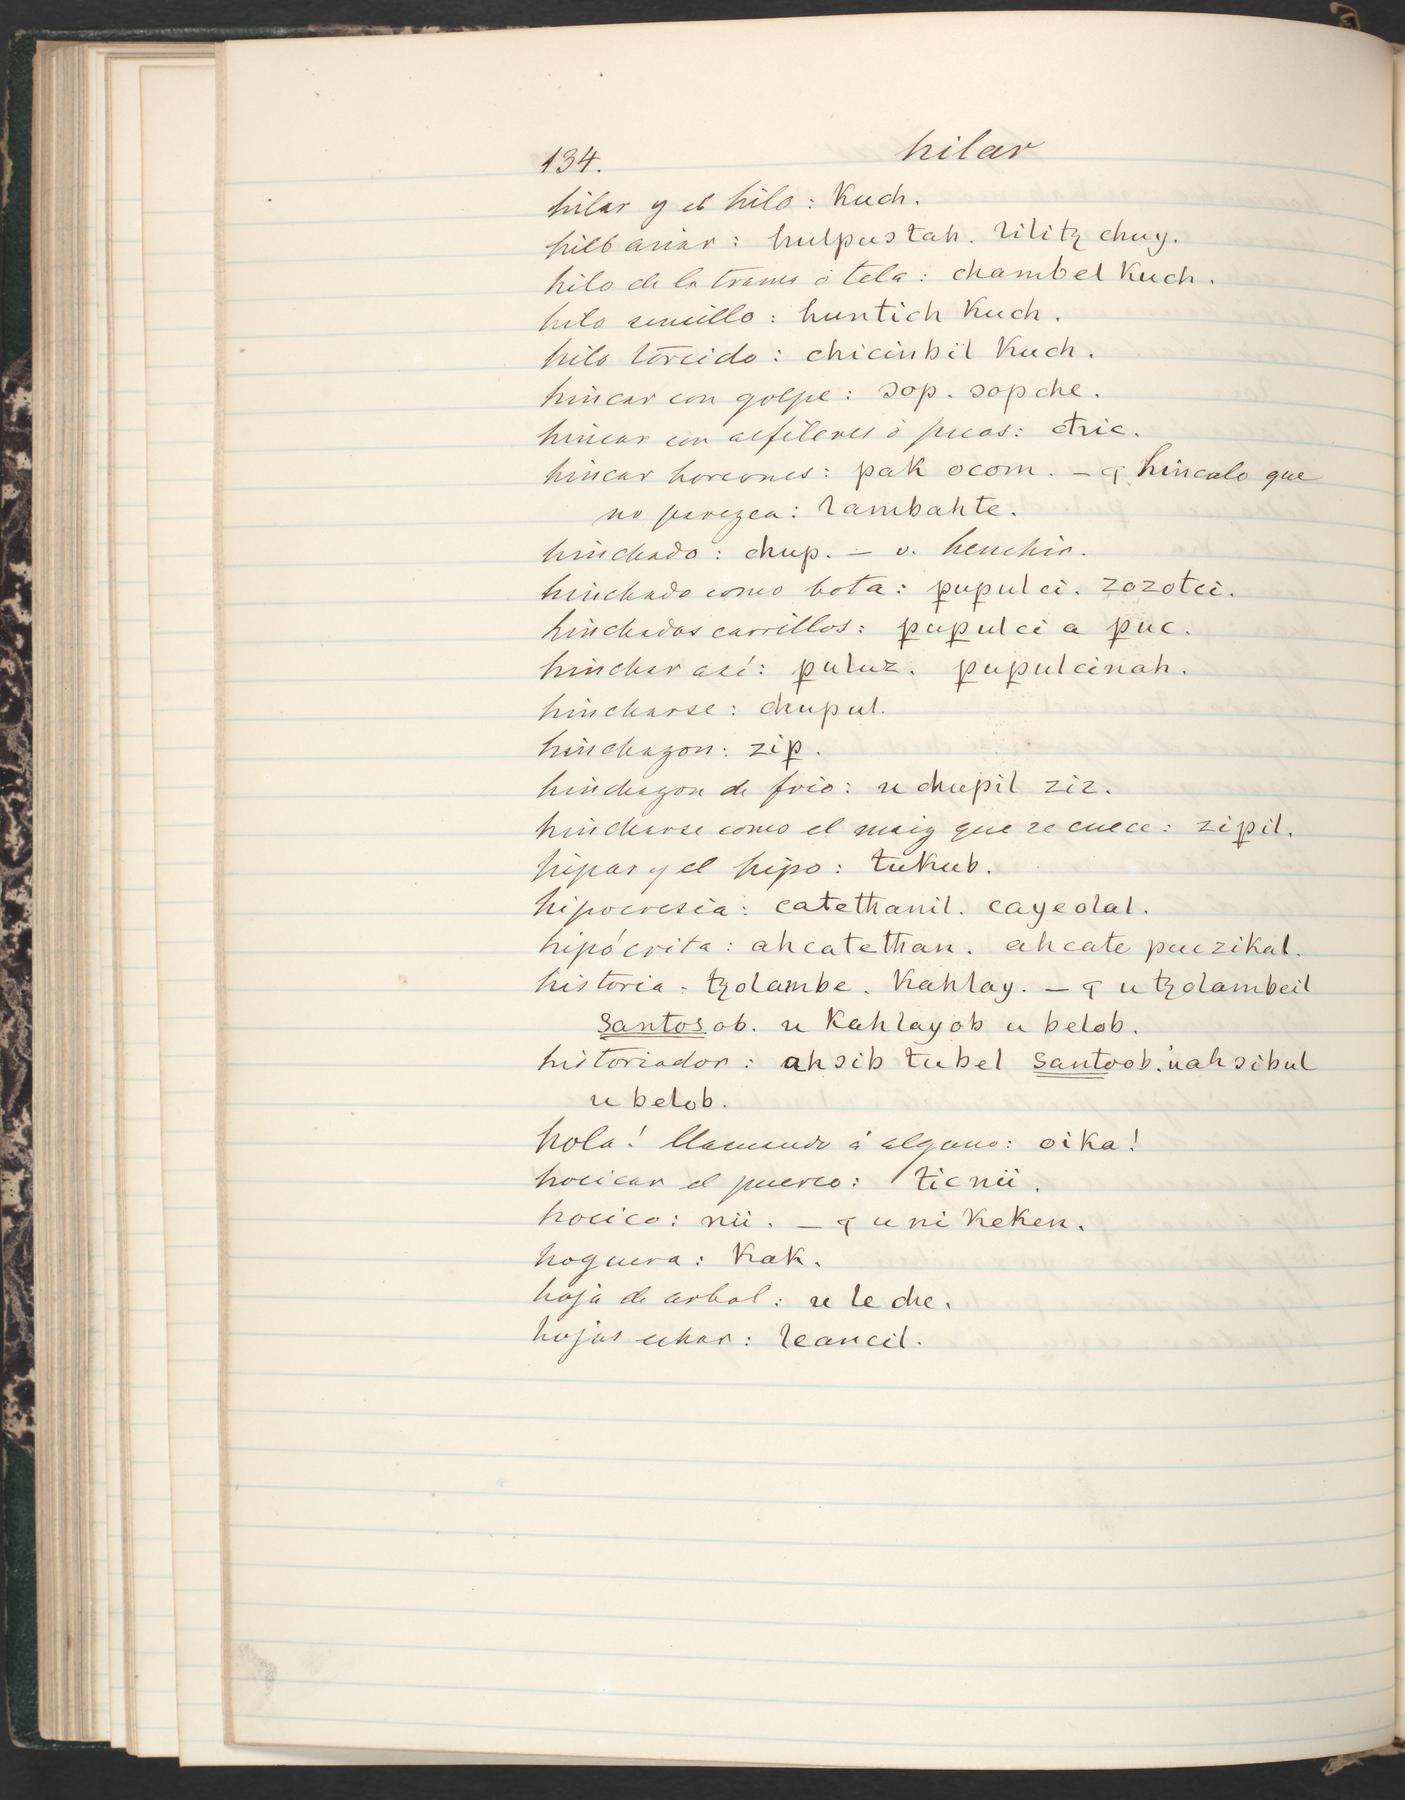 134. hilar
hilar y el hilo: Kuch.
hilbanar: hulpustah. lilitꜩ chuy.
hilo de la trama ó tela: chambel Kuch.
hilo sencillo: huntich Kuch.
hilo torcido: chicinbil Kuch.
hincar con golpe: ɔop. ɔopche.
hincar con alfileres ó puas: chic.
hincar horcones: pak ocom. — q hincalo que
no parezca: lambahte.
hinchado: chup. — v. henchir.
hinchado como bota: ꝑuꝑulci. zozotci.
hinchados carrillos: ꝑuꝑulci a ꝑuc.
hinchar así: ꝑuluz. ꝑuꝑulcinah.
hincharse: chupul.
hinchazon: ziꝑ.
hinchazon de frio: u chupil ziz.
hincharse como el maiz que se cuece: ziꝑil.
hipar y el hipo: tukub.
hipocresia: catethanil. cayeolal.
hipócrita: ahcatethan. ahcate puczikal.
historia: tꜩolambe. Kahlay. — q u tꜩolambeil
santosob. u Kahlayob u belob.
historiador: ahɔib tubel santoob. uahɔibul
u belob.
hola! llamando á alguno: oika!
hocicar el puerco: ticnii.
hocico: nii. — q u ni Keken.
hoguera: Kak.
hoja de arbol: u le che.
hojas echar: leancil.